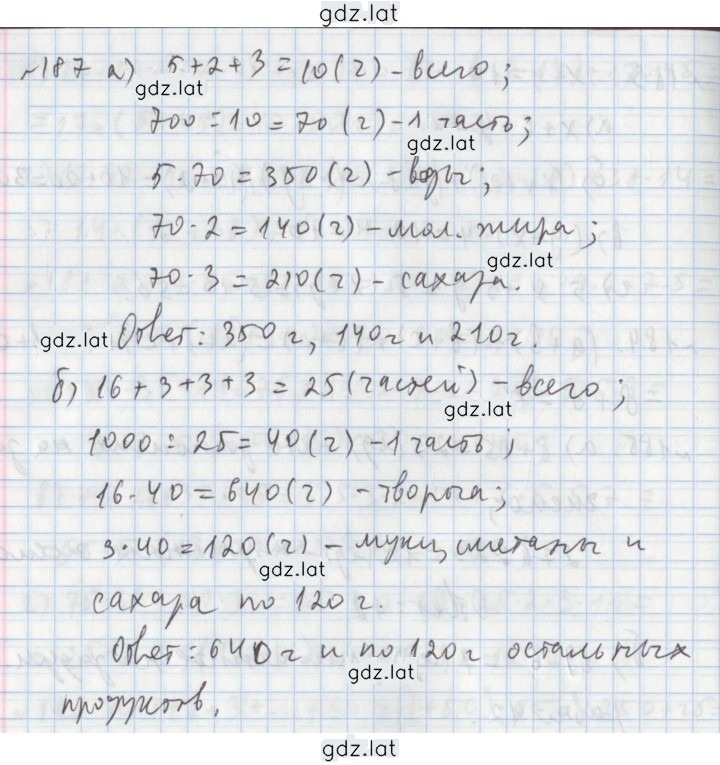 gdz.lat
№187 а) 5+2+3=10(г) – всего;
gdz.lat
700:10=70(г) – 1 часть;
gdz.lat
5·70=350(г) – воды;
70·2=140(г) – мол. жира;
gdz.lat
70·3=210(г) – сахара.
gdz.lat Ответ: 350 г, 140 г и 210 г.
б) 16+3+3+3=25(частей) – всего;
gdz.lat
1000:25=40(г) – 1 часть;
16·40=640(г) – творога;
3·40=120(г) – муки, сметаны и
gdz.lat
сахара по 120 г.
Ответ: 640 г и по 120 г остальных
gdz.lat
продуктов.
gdz.lat